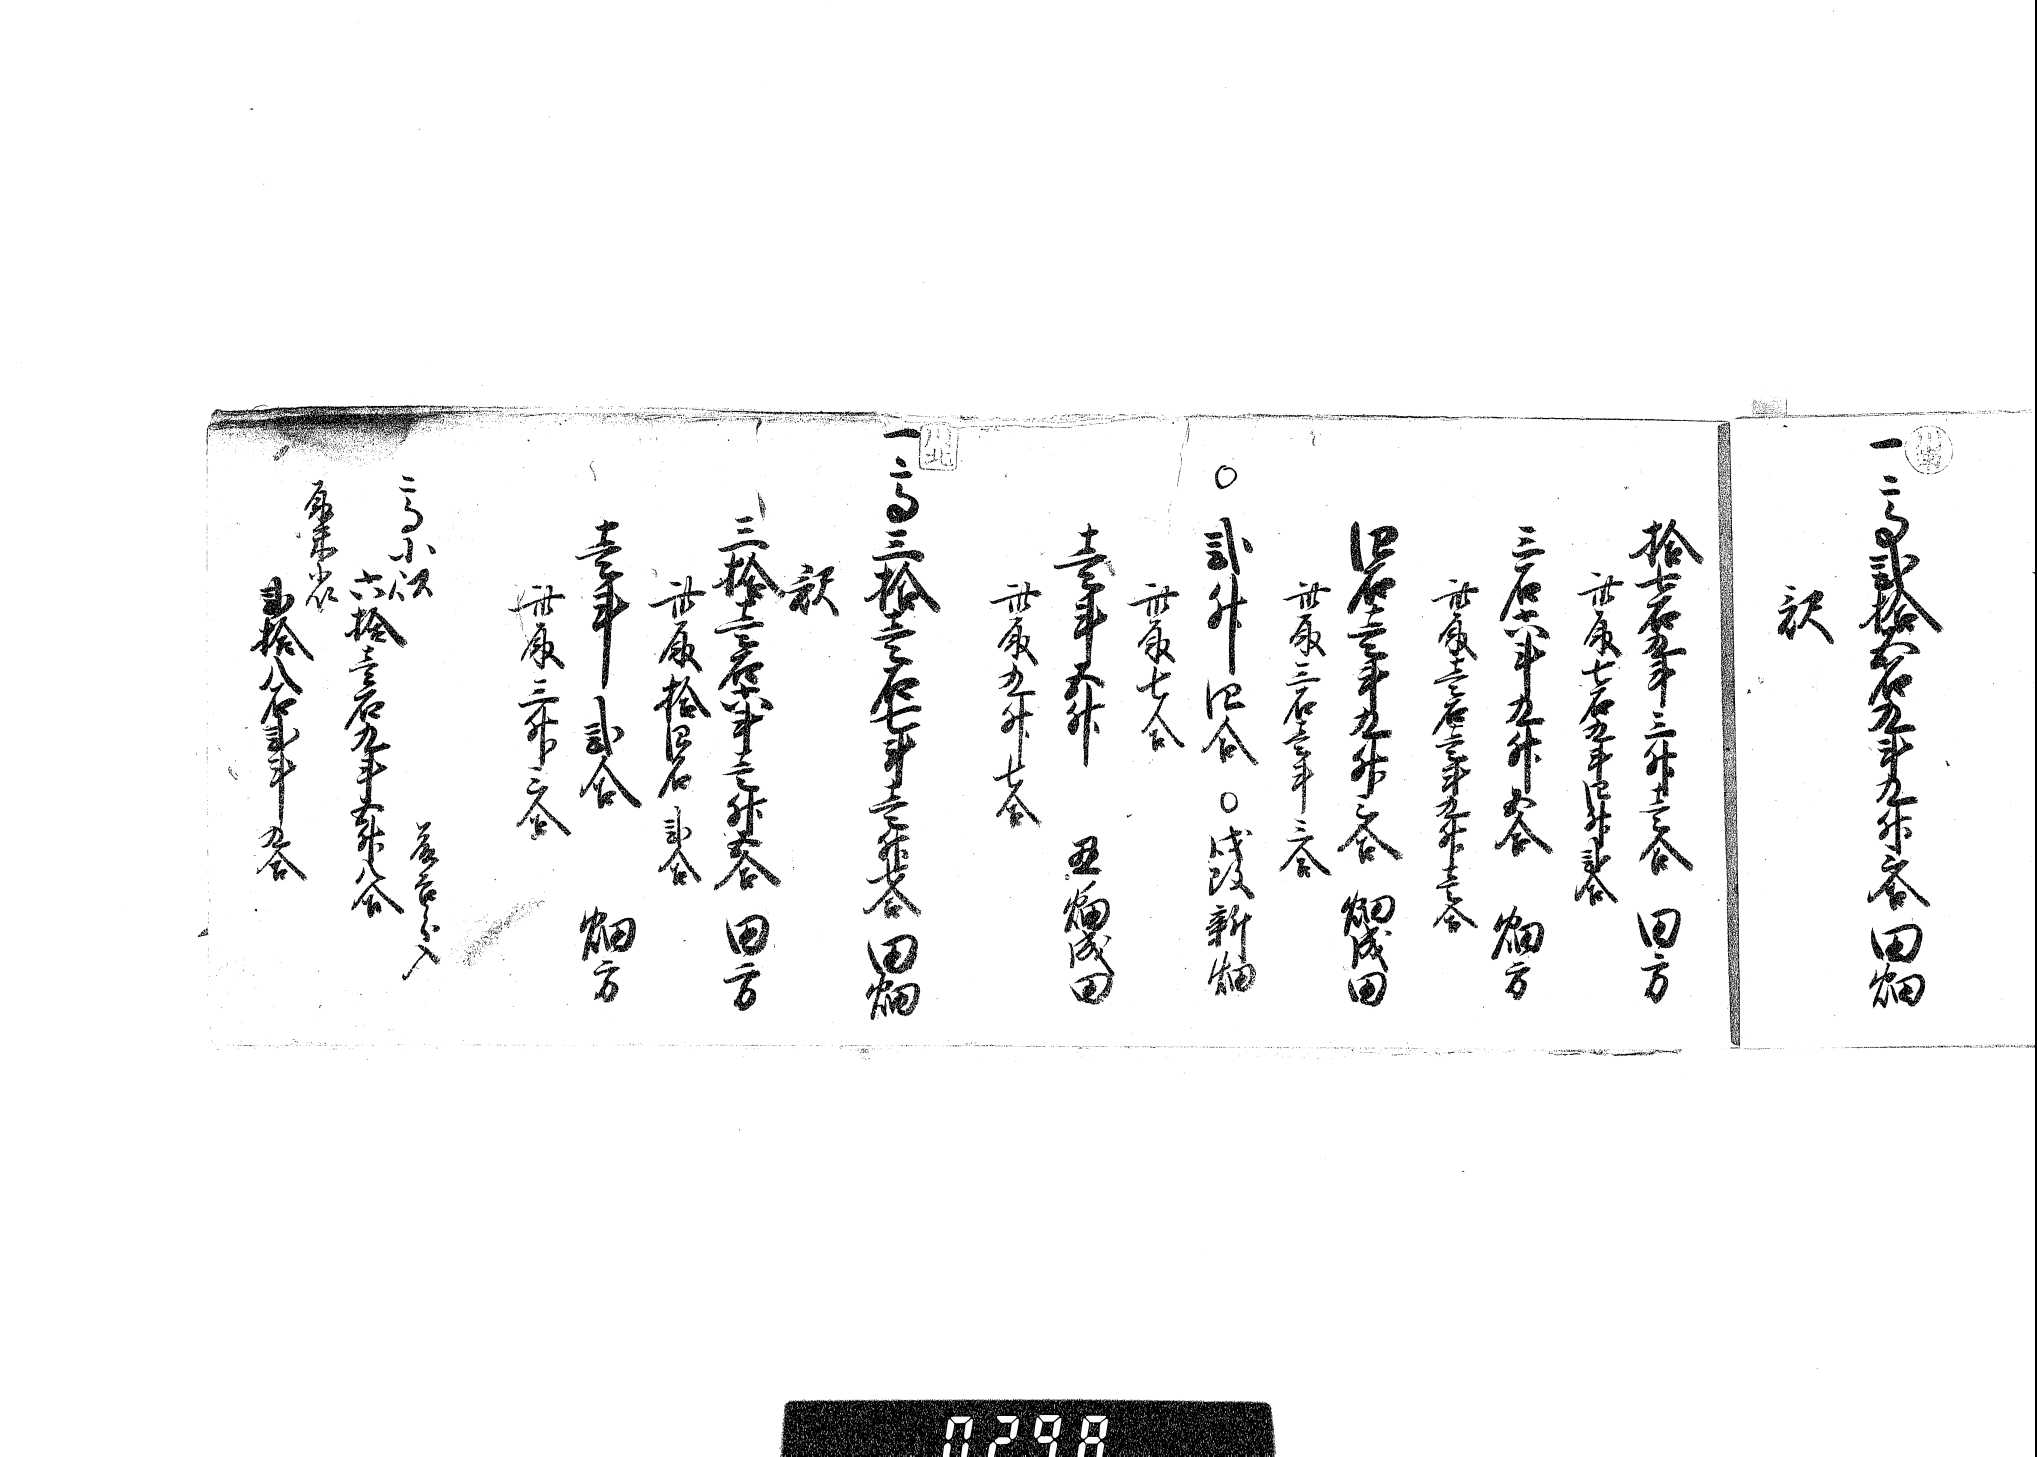 一高弐拾六石九斗九升三合田畑
訳
拾七石五斗三升壱合 田方
此取七石五斗四升弐合
三石六斗九升五合 畑方
此取壱石壱斗九升壱合
四石壱斗九升三合 畑成田
此取三石壱斗三合
○弐升四合 ○戌改新畑
此取七合
壱斗五升 丑畑成田
此取九升七合
一高三拾壱石七斗壱升七合 田畑
訳
三拾壱石六斗壱升五合 田方
此取拾四石弐合
壱斗弐合 畑方
此取三升三合
高小沢
六拾壱石九斗五升八合
取米小以
弐拾八石弐斗九合
0298